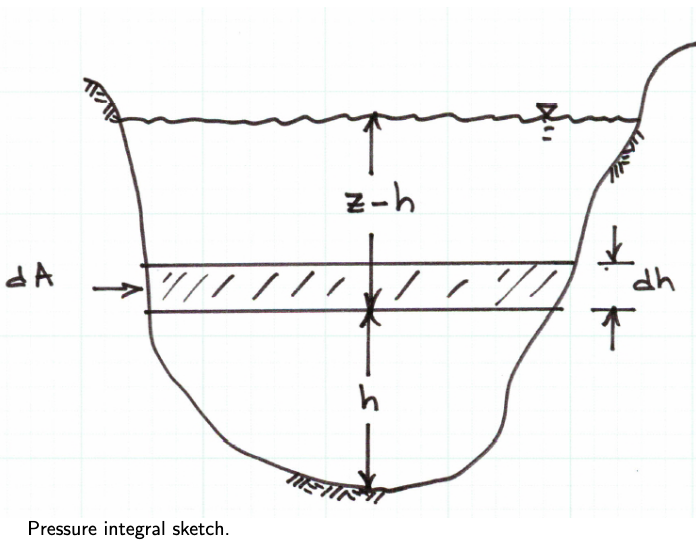 z-h
dA
dh
h
Pressure integral sketch.